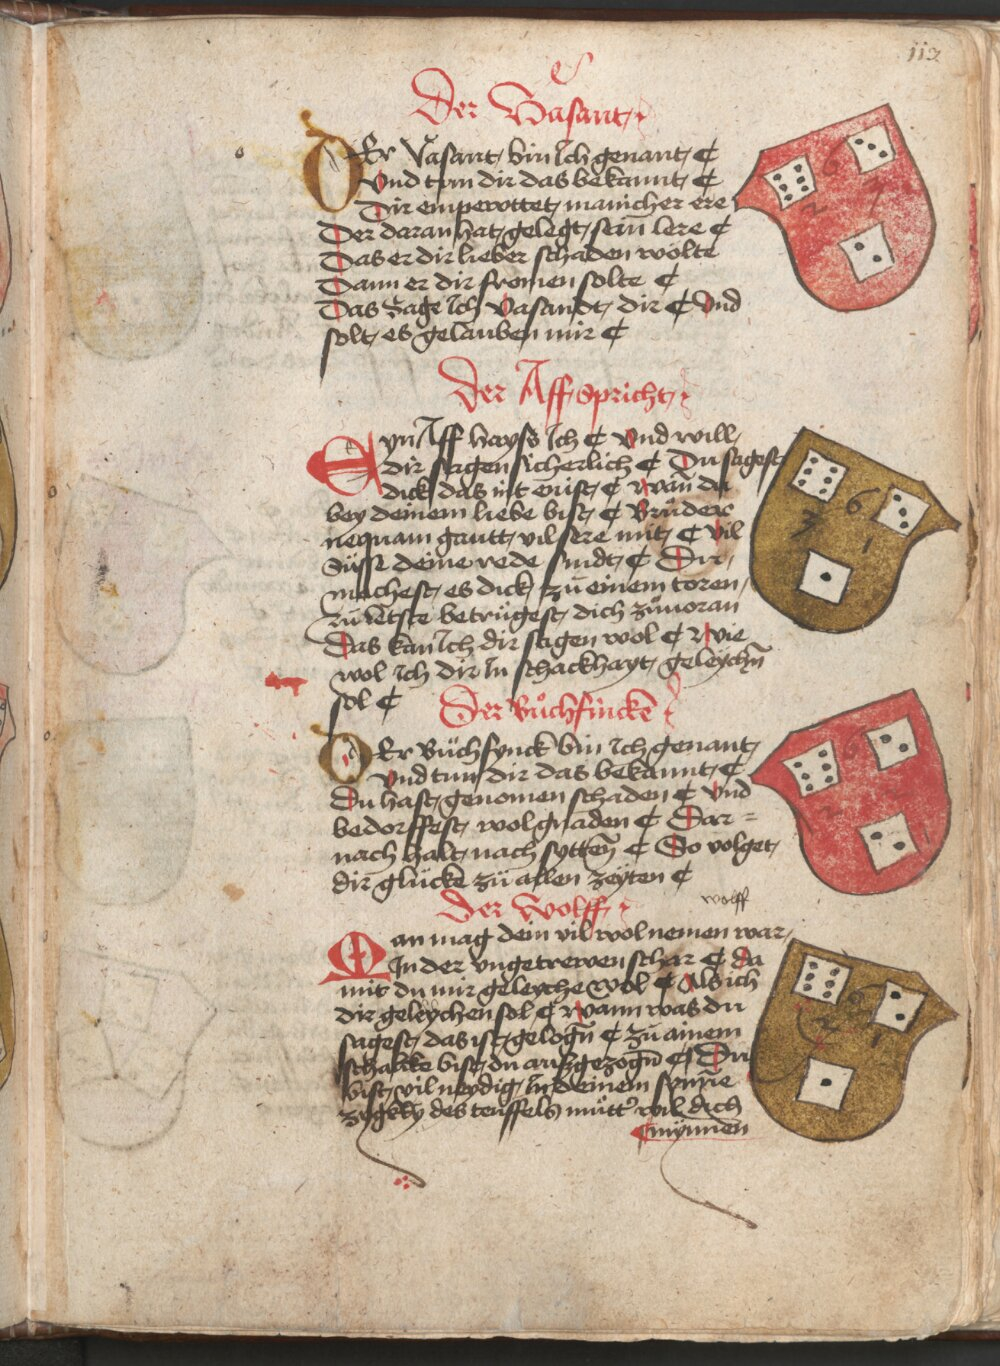 113
Der Vasant
DEr Vasant bin Ich genant
Vnd tun dir das bekannt
Dir emperottet manicher ere
Der daran hat gelegt sein lere
Das er dir lieber schaden wolte
Dann er dir fromen solte
Das Sage Ich Vasandt dir Vnd
solt es gelauben mir
Der Aff Spricht
Eyn Aff hayss Ich Vnd will
dir sagen sicherlich Du sagest
dick das nit enist wan du
bey deinem liebe bist Brůder
nequam gautt vil sere mit Vil
Süsse deine rede sindt Dir
machest es dick zů einem toren
zů letste betrügest dich zůuoran
Das kan Ich dir sagen wol Wie
wol Ich dir In schackhayt geleychn̄
sol
Der Bůchfincke
DEr Bůchfynck bin Ich genant
Vnd tun dir das bekannt
Du hast genomen schaden Vnd
bedorffest wol gnaden Dar=
nach halt nach sytten So volget
dir glücke zů allen zeyten
Der Wolff
wolff
Man mag dein vil wol nemen war
In der vngetrewen schar da
mit du mir geleyche wol Als ich
dir geleychen sol Wann was du
sagest das ist gelogn̄ zů ainem
schalke bist du aufgezogn̄ Du
bist vil neydig In deinem synne
des teuffels můtter wil dich
mynnen